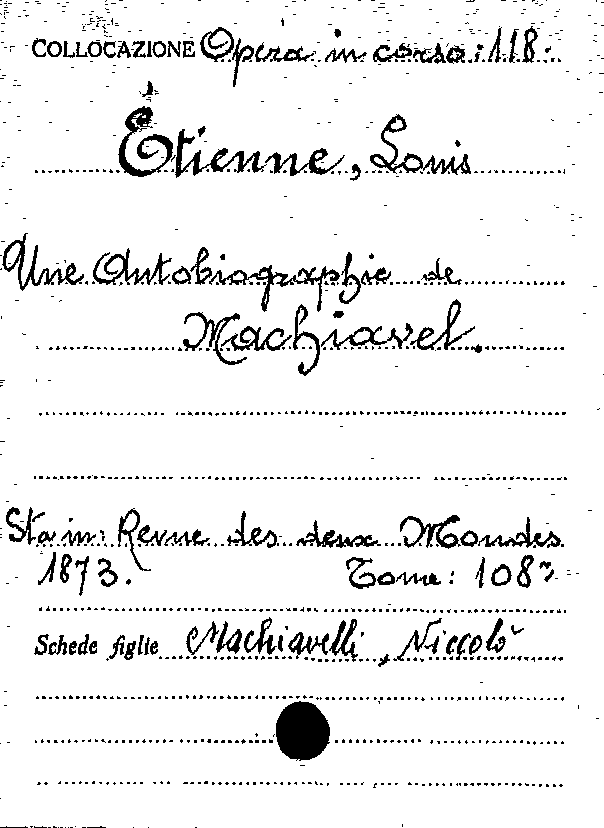 COLLOCAZIONE Opera in corso: 118.
Étienne, Louis
Une Autobiographie de
Machiavel.
Sta in: Revue des deux Mondes
1873. Tome: 108º
Schede figlie Machiavelli, Niccolò